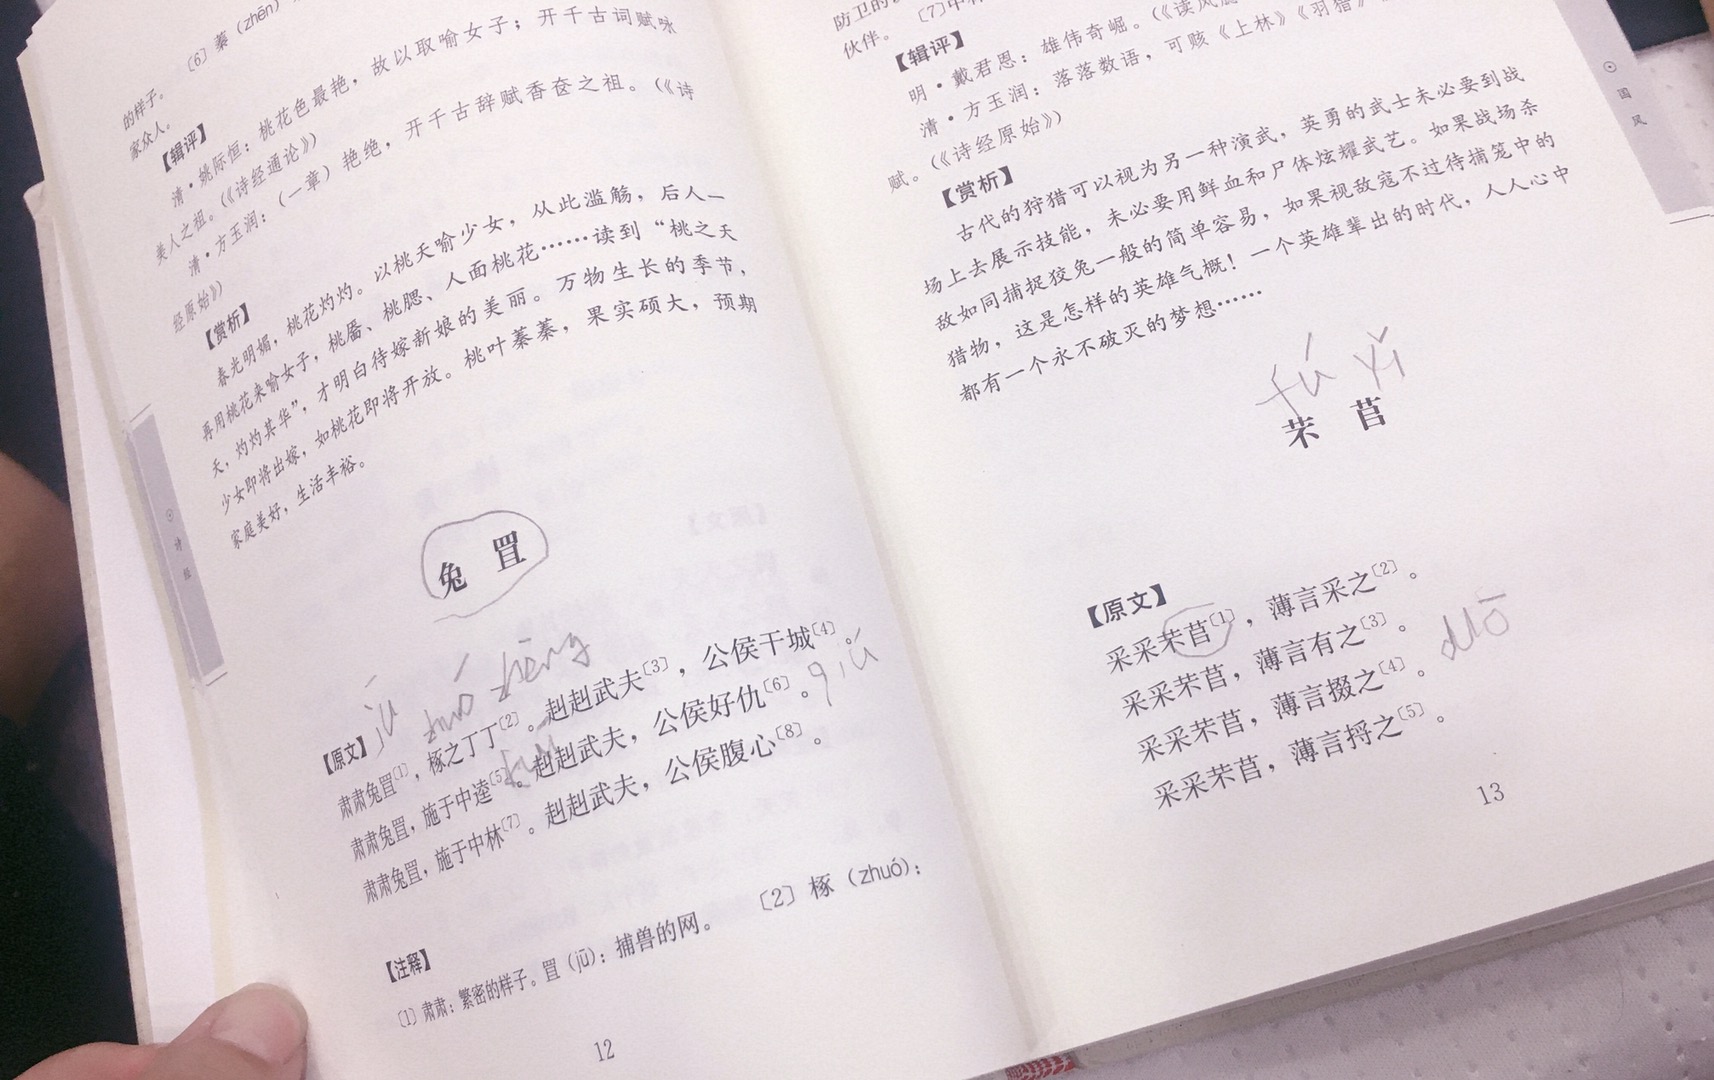 〔6〕蓁（zhēn）
的样子。
家众人。
【辑评】
清·姚际恒：桃花色最艳，故以取喻女子；开千古词赋咏
美人之祖。（《诗经通论》）
清·方玉润：（一章）艳绝，开千古辞赋香奁之祖。（《诗
经原始》）
【赏析】
春光明媚，桃花灼灼。以桃夭喻少女，从此滥觞，后人一
再用桃花来喻女子，桃靥、桃腮、人面桃花……读到“桃之夭
夭，灼灼其华”，才明白待嫁新娘的美丽。万物生长的季节，
少女即将出嫁，如桃花即将开放。桃叶蓁蓁，果实硕大，预期
家庭美好，生活丰裕。
⊙诗经
兔 罝
jū zhuó zhēng
【原文】
肃肃兔罝〔1〕，椓之丁丁〔2〕。赳赳武夫〔3〕，公侯干城〔4〕。
肃肃兔罝，施于中逵〔5〕。赳赳武夫，公侯好仇〔6〕。qiú
肃肃兔罝，施于中林〔7〕。赳赳武夫，公侯腹心〔8〕。
【注释】
〔1〕肃肃：繁密的样子。罝（jū）：捕兽的网。 〔2〕椓（zhuó）：
12
防卫的
〔7〕中林
伙伴。
【辑评】
明·戴君恩：雄伟奇崛。（《读风臆
清·方玉润：落落数语，可赅《上林》《羽猎》
赋。（《诗经原始》）
【赏析】
古代的狩猎可以视为另一种演武，英勇的武士未必要到战
场上去展示技能，未必要用鲜血和尸体炫耀武艺。如果战场杀
敌如同捕捉狡兔一般的简单容易，如果视敌寇不过待捕笼中的
猎物，这是怎样的英雄气概！一个英雄辈出的时代，人人心中
都有一个永不破灭的梦想……
⊙国风
fú yǐ
芣 苢
【原文】
采采芣苢〔1〕，薄言采之〔2〕。
采采芣苢，薄言有之〔3〕。
采采芣苢，薄言掇之〔4〕。duō
采采芣苢，薄言捋之〔5〕。
13